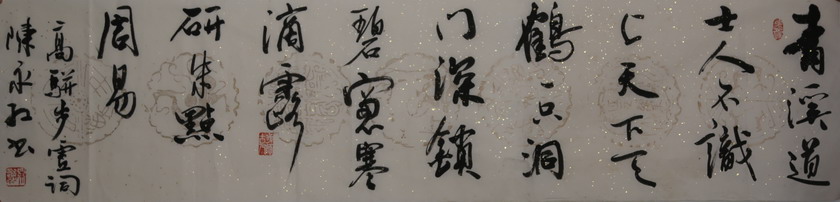 青溪道
士人不識
上天下天
鶴一只洞
門深鎖
碧窗寒
滴露
研朱點
周易
高駢步虛詞
陳永红书